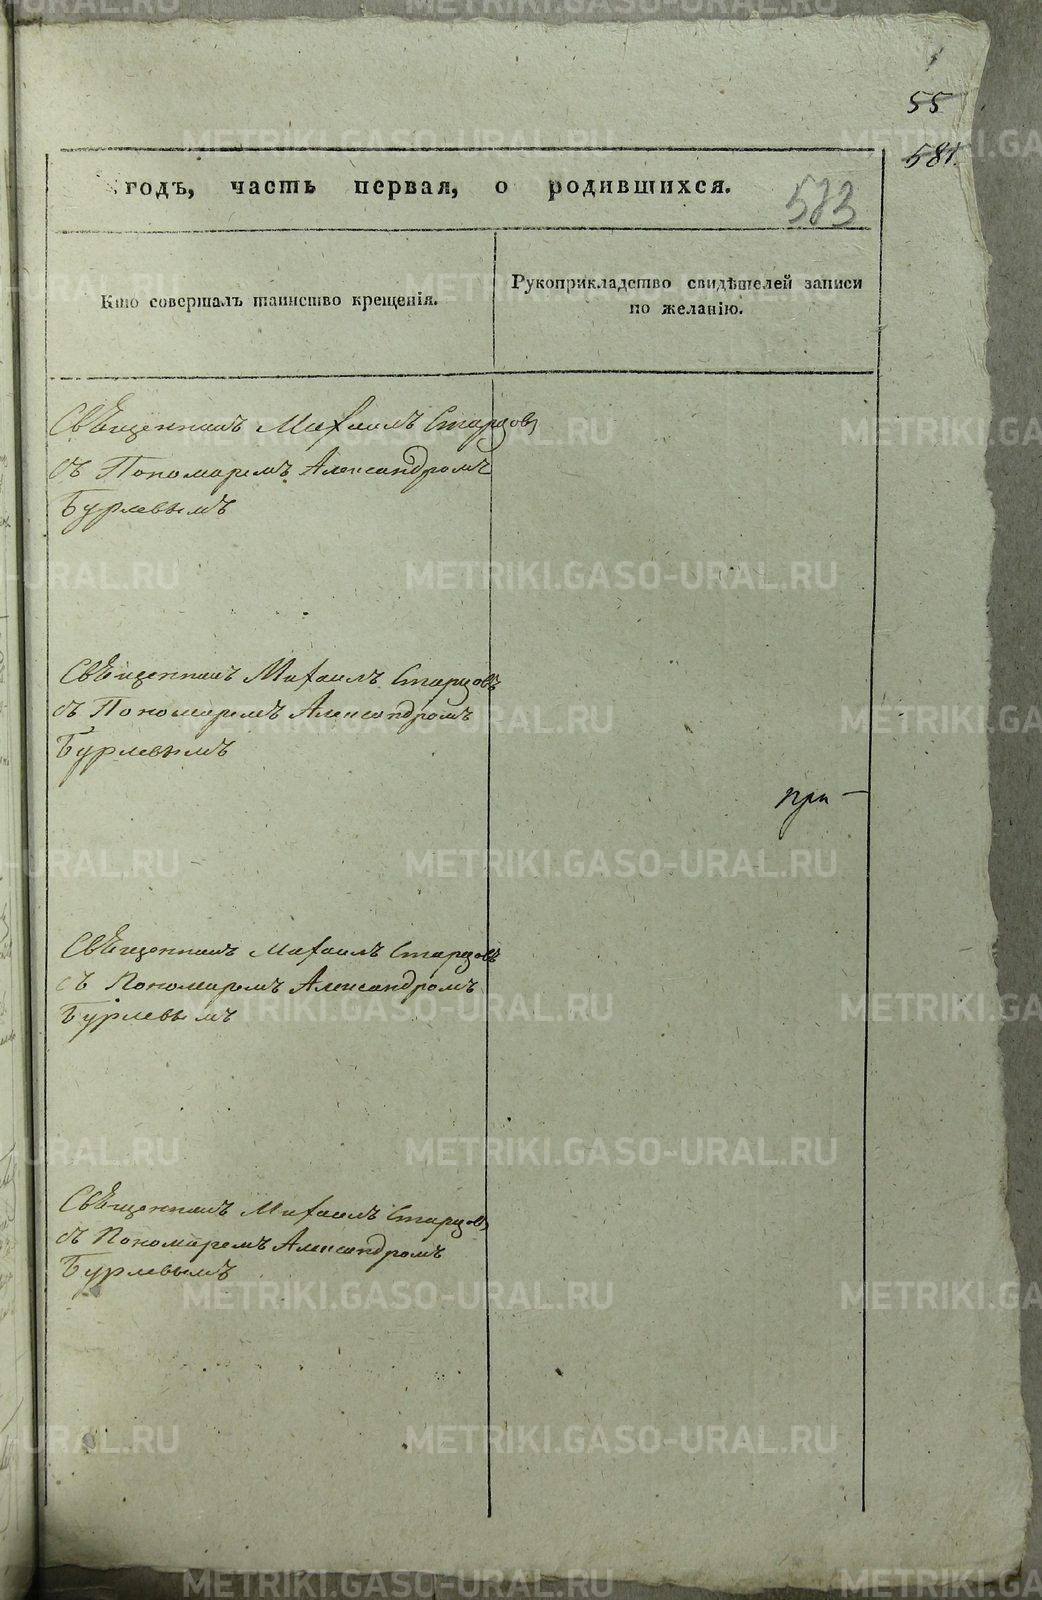 55
581.
годъ, часть первая, о родившихся.
583
Кто совершалъ таинство крещенія.
Рукоприкладство свидѣтелей записи
по желанію.
Свѣщенникъ Михаилъ Старцовъ
съ Пономаремъ Александромъ
Бурлевымъ
Свѣщенникъ Михаилъ Старцовъ
съ Пономаремъ Александромъ
Бурлевымъ
при —
Свѣщенникъ Михаилъ Старцовъ
съ Пономаремъ Александромъ
Бурлевымъ
Свѣщенникъ Михаилъ Старцовъ
съ Пономаремъ Александромъ
Бурлевымъ
METRIKI.GASO-URAL.RU